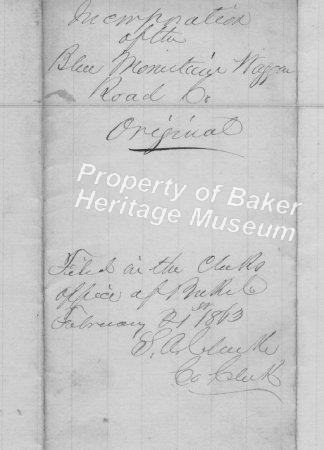 Incorporation
of the
Blue Mountain Waggon
Road Co
Original
Property of Baker
Heritage Museum
Filed in the Clerks
office of Baker Co
February 21st 1863
S. A. Clarke
Co Clerk